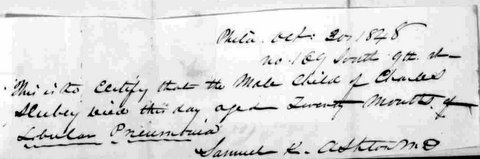 Phila. Oct: 20, 1848
no. 169 South 9th. st
This is to Certify that the Male Child of Charles
died this day aged Twenty Months, of
Lobular Pneumonia
Samuel K. Ashton MD